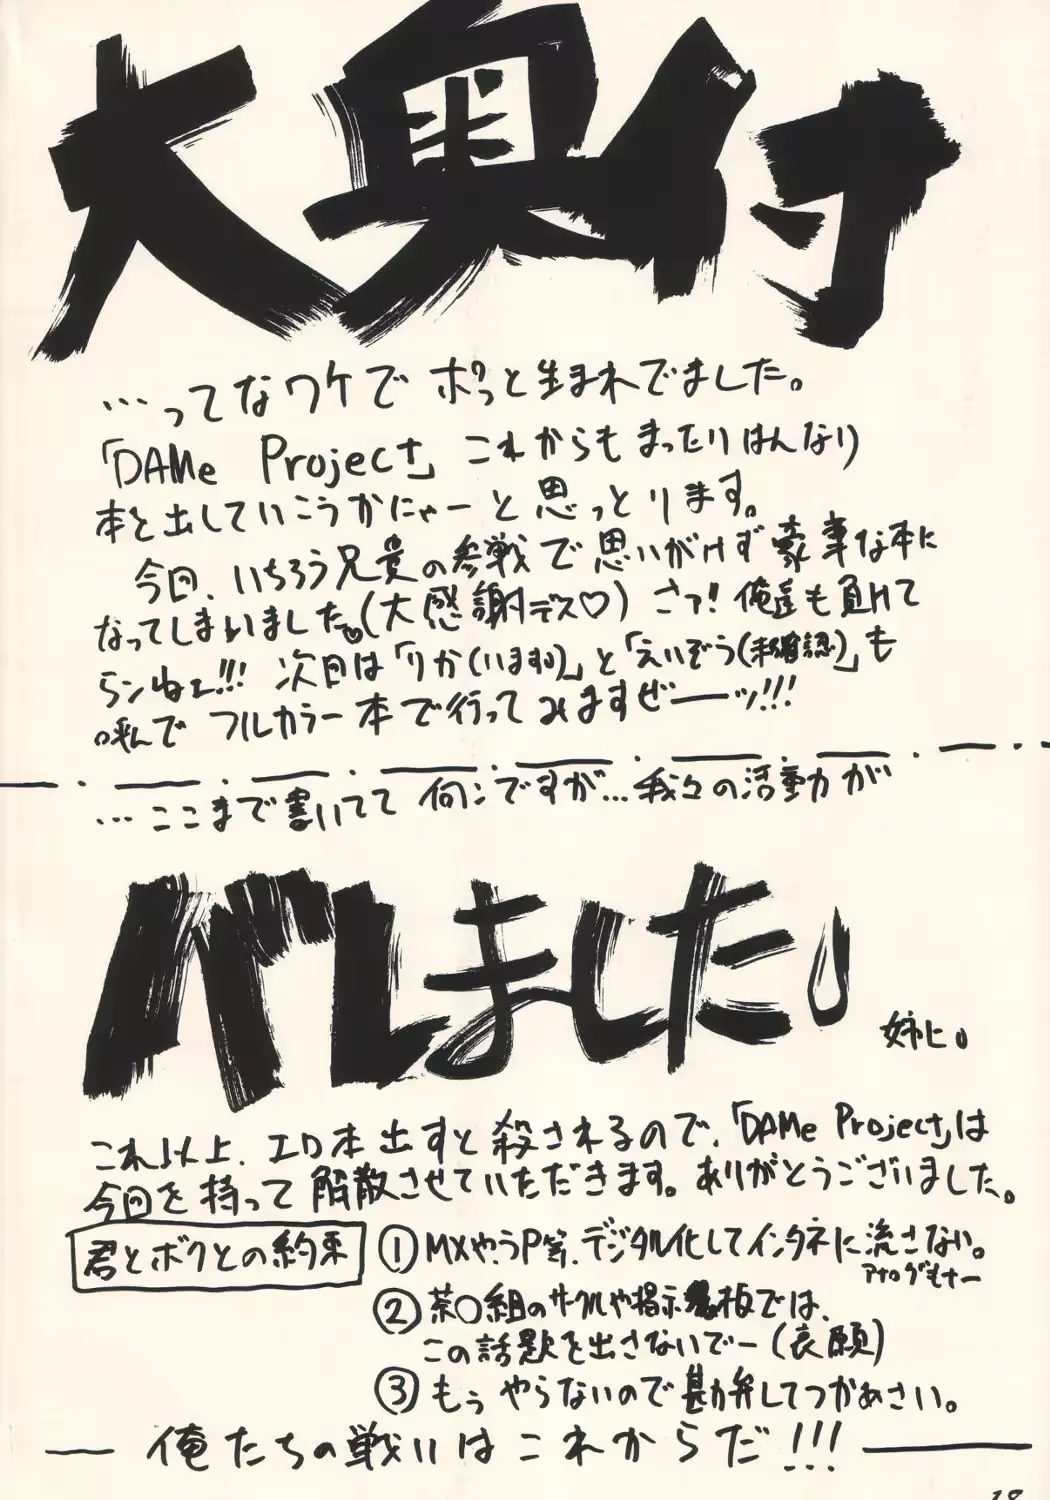 大奥付
…ってなワケでポっと生まれでました。
「DAMe Project」これからもまったりはんなり
本を出していこうかにゃーと思っとります。
今回、いちろう兄貴の参戦で思いがけず豪華な本に
なってしまいました。(大感謝デス♡) さァ!俺達も負けて
らンねェ!!! 次回は「りか(います)」と「えいぞう(未確認)」も
呼んでフルカラー本で行ってみますぜーッ!!!
…ここまで書いてて何ンですが…我々の活動が
バレました。
姉に。
これ以上、エロ本出すと殺されるので、「DAMe Project」は
今回を持って解散させていただきます。ありがとうございました。
君とボクとの約束
①MXやうP等、デジタル化してインタネに流さない。
アナログもナー
②茶〇組のサークルや掲示板では、
この話題を出さないでー(哀願)
③もぅやらないので勘弁してつかぁさい。
俺たちの戦いはこれからだ!!!
18